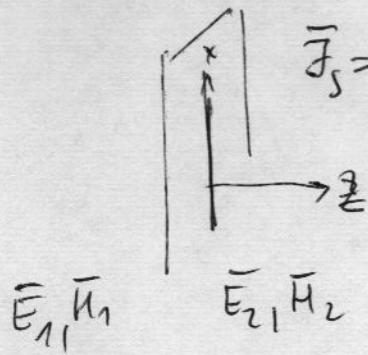 x
J̅s =
z
E̅1, H̅1 E̅2, H̅2